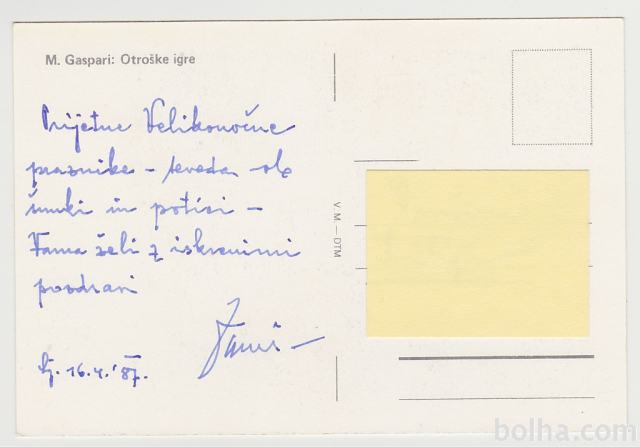 M. Gaspari: Otroške igre
Prijetne Velikonočne
praznike – seveda ob
šunki in potici –
Vama želi z iskrenimi
pozdravi
Lj. 16.4.'87.
V. M. — DTM
bolha.com